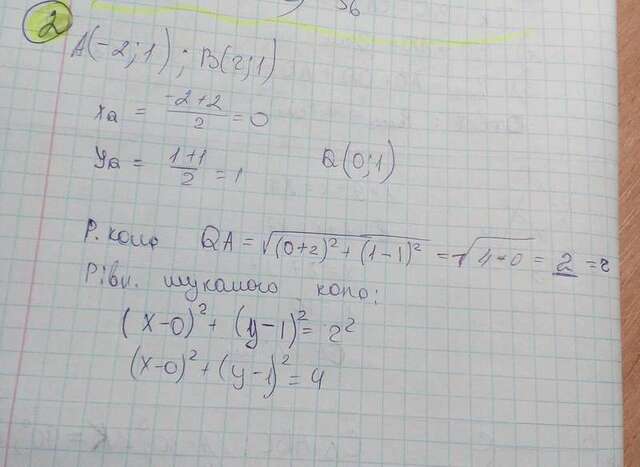 56
2
A(-2;1); B(2;1)
xa = (-2+2)/2 = 0
ya = (1+1)/2 = 1 Q(0;1)
Р. коло QA = √((0+2)² + (1-1)²) = √(4-0) = 2 =
Рівн. шуканого коло:
(x-0)² + (y-1)² = 2²
(x-0)² + (y-1)² = 4